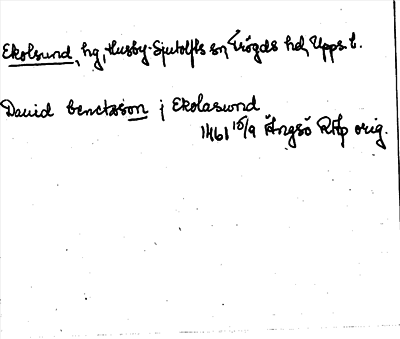 Ekolsund, hg, Husby-Sjutolfts sn, Trögds hd, Upps. l.
David benctsson j Ekolaswnd
1461 15/9 Ängsö RAp orig.